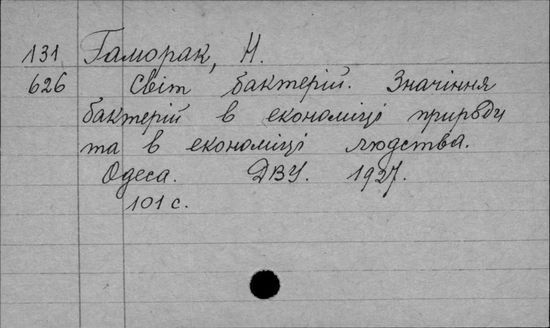 131 Гаморак, Н.
626 Світ бактерій. Значіння
бактерій в економіці природи
та в економіці людства.
Одеса. ДВУ. 1927.
101 с.